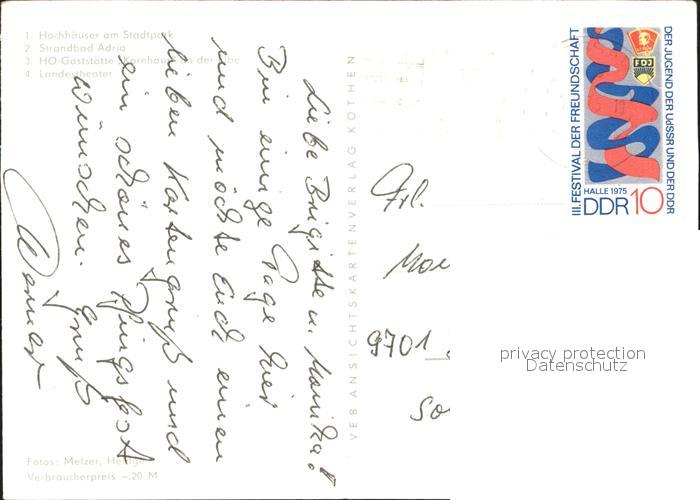 1. Hochhäuser am Stadtpark
2. Strandbad Adria
3. HO-Gaststätte "Kornhaus" an der Elbe
4. Landestheater
Liebe Brigitte u. Monika!
Bin einige Tage hier
und möchte Euch einen
lieben Kartengruß und
ein schönes Pfingstfest
wünschen. Gruß
Werner
Fotos: Melzer,
Verbraucherpreis –.20 M
VEB ANSICHTSKARTENVERLAG KÖTHEN
Frl.
9701
III. FESTIVAL DER FREUNDSCHAFT
DER JUGEND DER UdSSR UND DER DDR
FDJ
HALLE 1975
DDR 10
privacy protection
Datenschutz